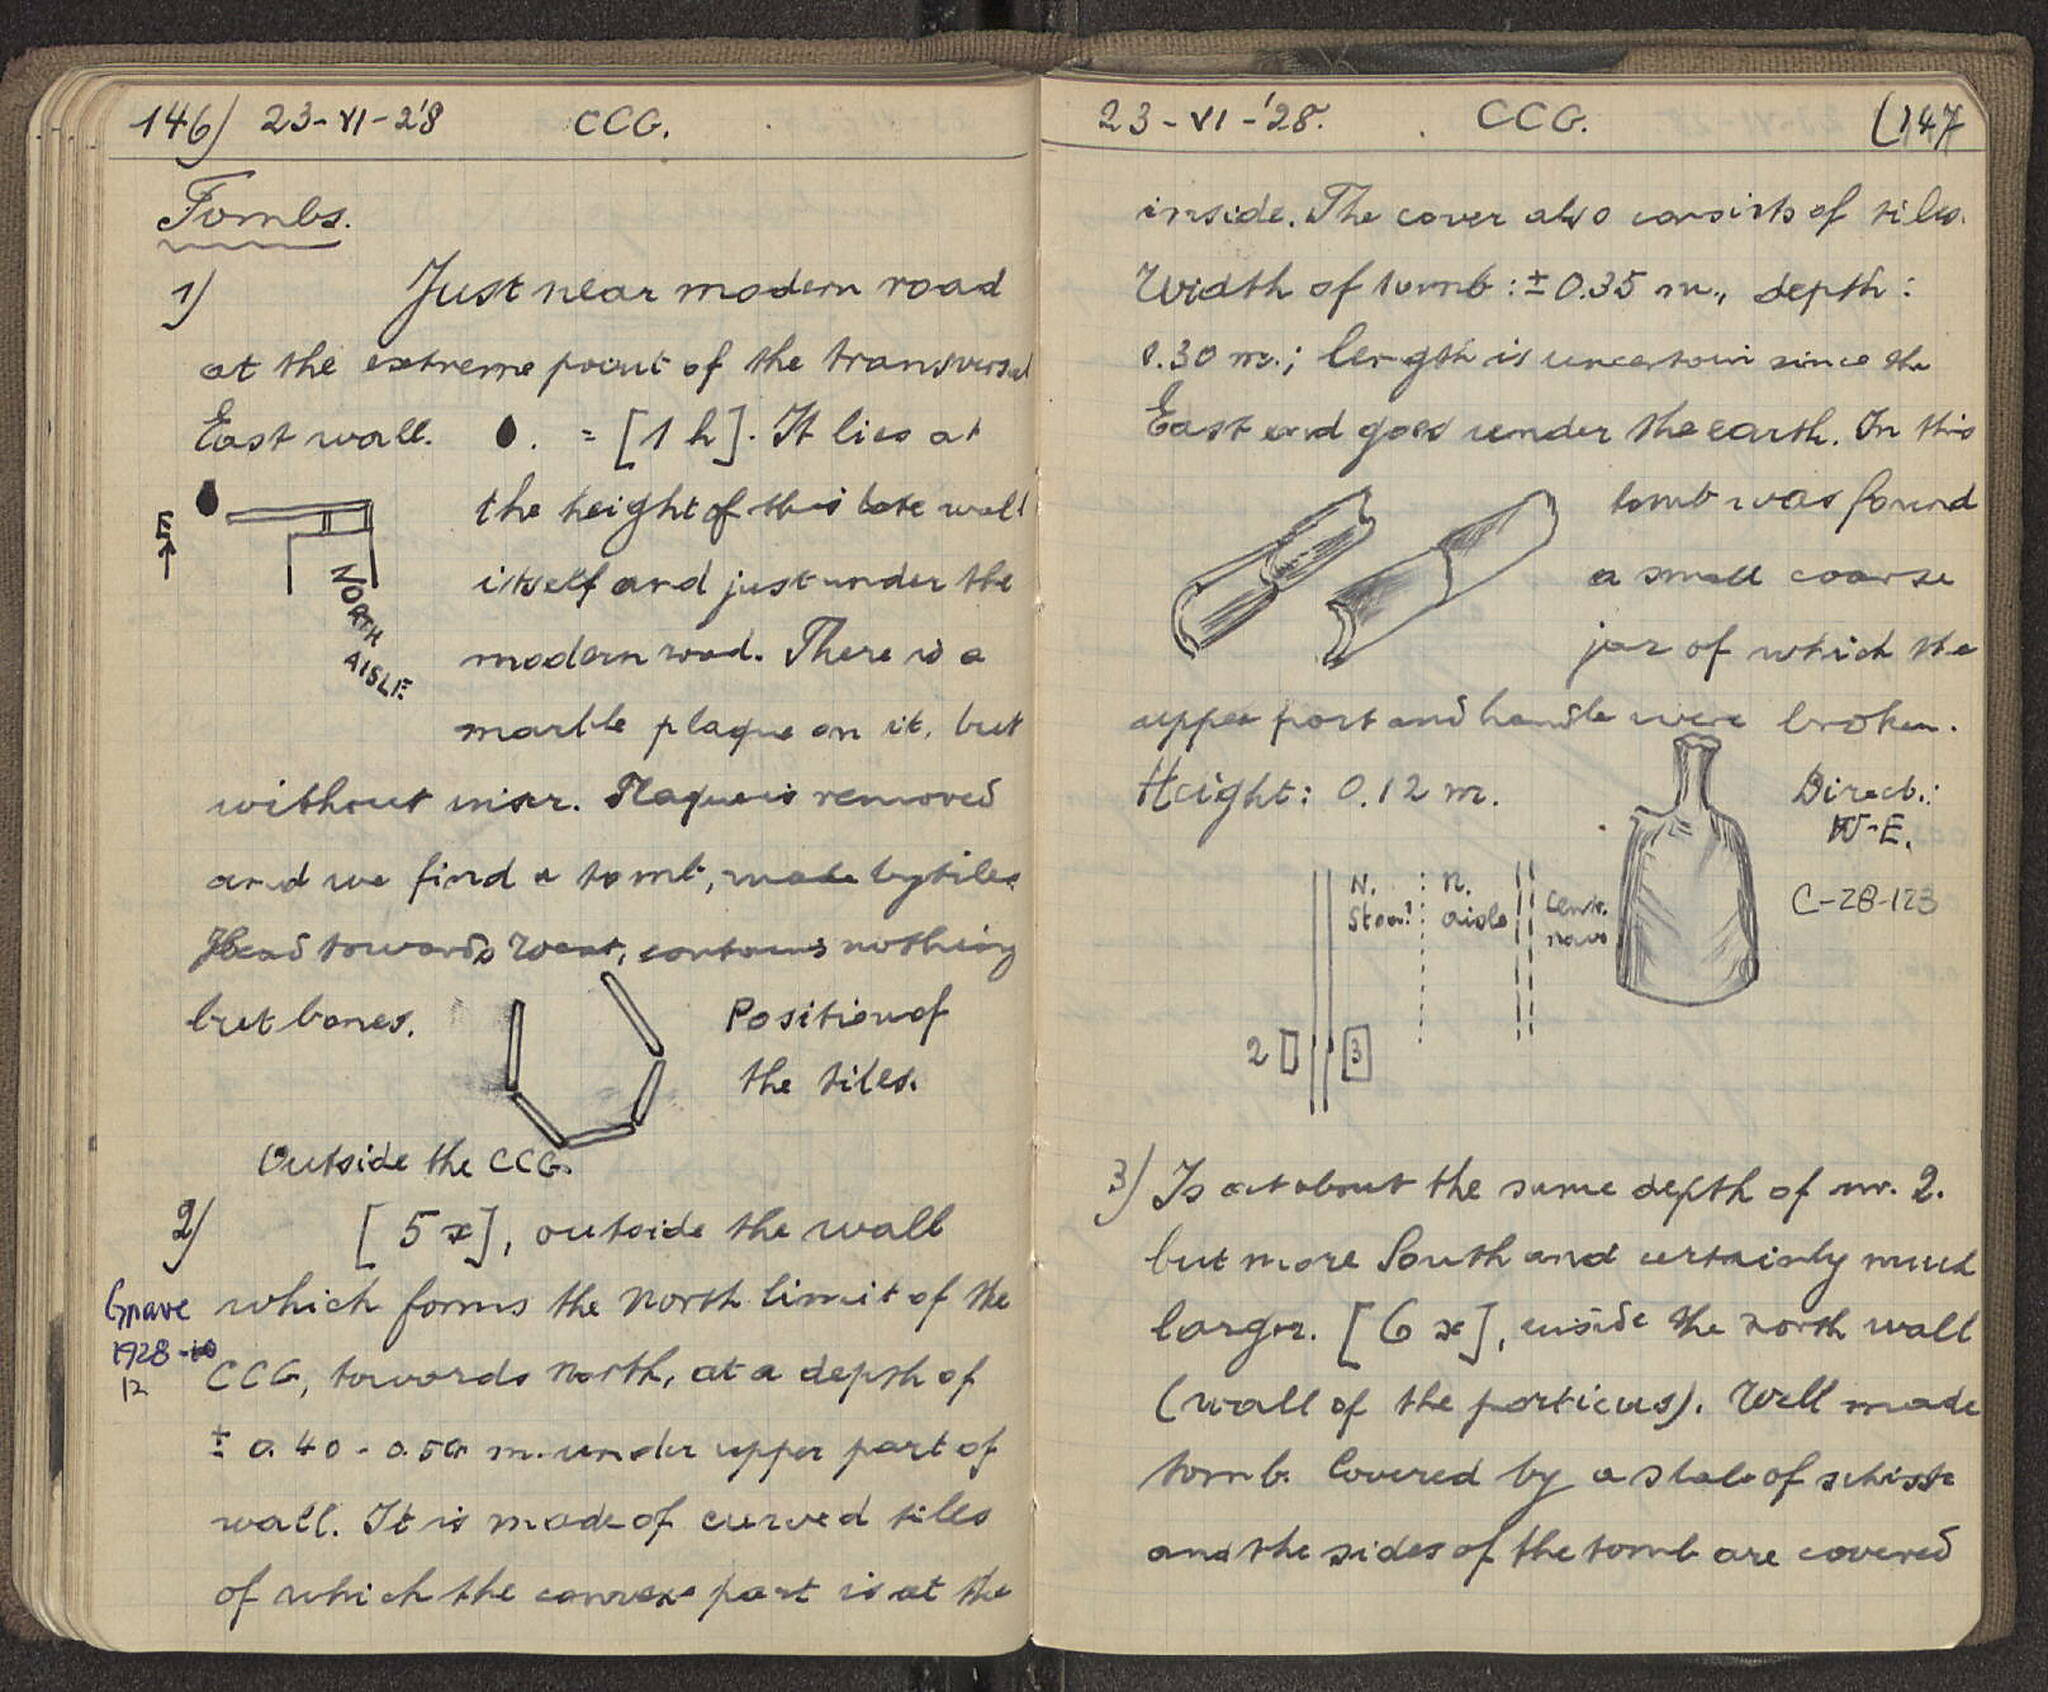 146) 23-VI-'28 CCG.
Tombs.
1) Just near modern road
at the extreme point of the transversal
East wall. . = [1 h]. It lies at
the height of this late wall
E
itself and just under the
NORTH
AISLE
modern road. There is a
marble plaque on it, but
without inscr. Plaque is removed
and we find a tomb, made by tiles.
Head towards West, contains nothing
but bones.
Position of
the tiles.
Outside the CCG.
2) [5 x], outside the wall
which forms the North limit of the
Grave
1928-10
12
CCG, towards North, at a depth of
± 0.40 - 0.50 m. under upper part of
wall. It is made of curved tiles
of which the convexe part is at the
23-VI-'28. CCG. (147
inside. The cover also consists of tiles.
Width of tomb: ± 0.35 m., depth:
0.30 m.; length is uncertain since the
East end goes under the earth. In this
tomb was found
a small coarse
jar of which the
upper part and handle were broken.
Height: 0.12 m.
Direct.:
W-E.
C-28-123
N.
Stoa?
n.
aisle
centr.
nave
2 3
3) Is at about the same depth of nr. 2.
but more South and certainly much
larger. [6 x], inside the north wall
(wall of the porticus). Well made
tomb. Covered by a slab of schiste
and the sides of the tomb are covered